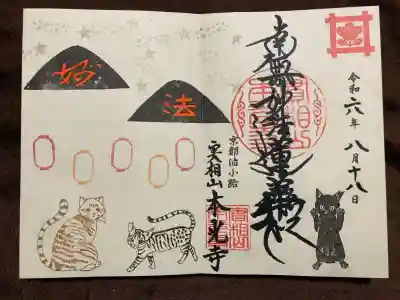 令和六年 八月十八日
南無妙法蓮華経
京都油小路
実相山 本光寺
妙
法